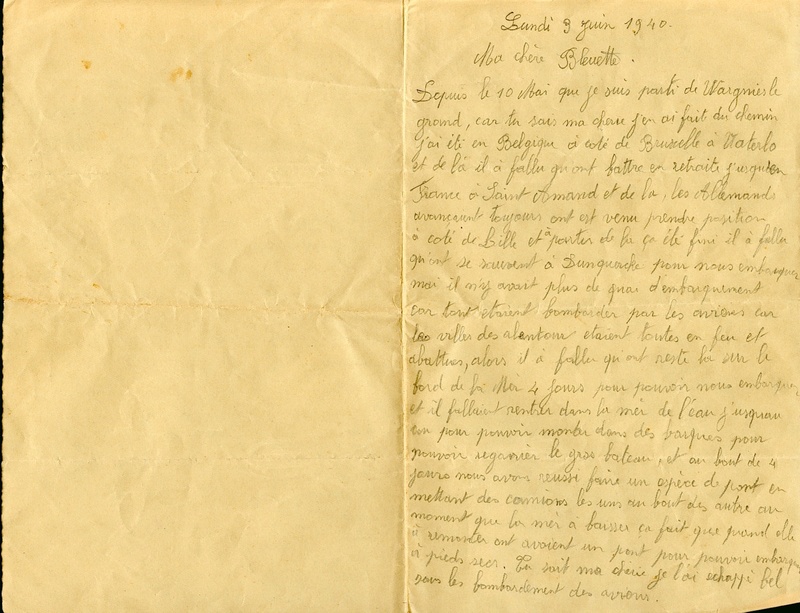 Lundi 3 juin 1940.
Ma chère Bleuette.
Depuis le 10 Mai que je suis parti de Wargnies le
grand, car tu sais ma cherie j'en ai fait du chemin
j'ai été en Belgique à coté de Bruxelle à Waterlo
et de là il à fallu qu'ont battre en retraite jusqu'en
France à Saint Amand et de la, les Allemands
avançaient toujours ont est venu prendre position
à coté de Lille et à partir de la ça été fini il à fallu
qu'ont se sauvent à Dunquerke pour nous embarquer
mai il n'y avait plus de quai d'embarquement
car tout etaient bombarder par les avions car
les villes des alentour etaient toutes en feu et
abattues, alors il à fallu qu'ont reste là sur le
bord de la Mer 4 jours pour pouvoir nous embarquer,
et il fallaient rentrer dans la mer de l'eau j'usquau
cou pour pouvoir monter dans des barques pour
pouvoir regagnier le gros bateau, et au bout de 4
jours nous avons reussi faire un espèce de pont en
mettant des camions les uns au bout des autre au
moment que la mer à baisser ça fait que quand elle
à remonter ont avaient un pont pour pouvoir embarquer
à pieds secs. Tu sait ma cherie je l'ai echappé bel
sous les bombardement des avions.